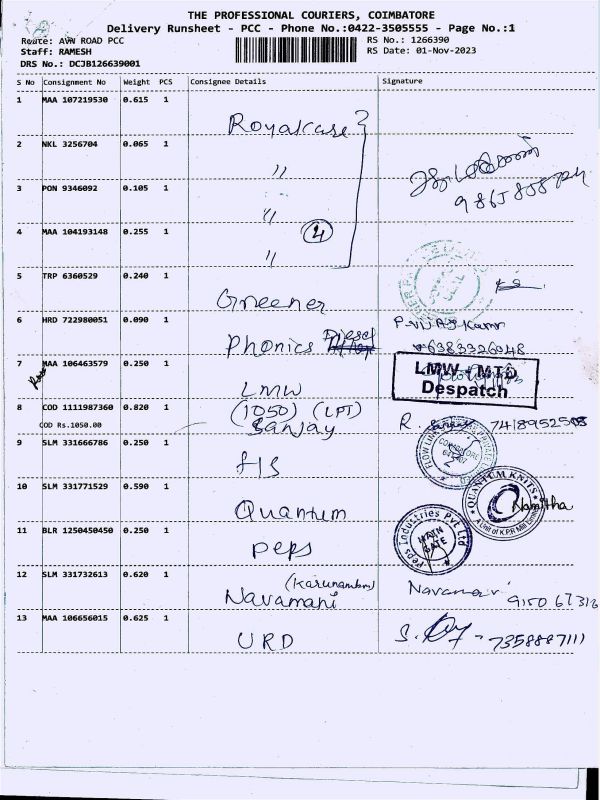 THE PROFESSIONAL COURIERS, COIMBATORE
Delivery Runsheet - PCC - Phone No.:0422-3505555 - Page No.:1
Route: AVN ROAD PCC
RS No.: 1266390
Staff: RAMESH
RS Date: 01-Nov-2023
DRS No.: DCJB126639001
S No Consignment No Weight PCS Consignee Details Signature
1 MAA 107219530 0.615 1
Royalcase
2 NKL 3256704 0.065 1
"
3 PON 9346092 0.105 1
"
4 MAA 104193148 0.255 1
4
"
5 TRP 6360529 0.240 1
Greener
6 HRD 722980051 0.090 1
Phonics Diesel
6383326048
7 MAA 106463579 0.250 1
LMW
LMW MTD
Despatch
8 COD 1111987360 0.820 1
(1050) (LPT)
COD Rs.1050.00
Sanjay
R. Sanjay 7418952508
9 SLM 331666786 0.250 1
FLOW LINK
COIMBATORE
10 SLM 331771529 0.590 1
Quantum
QUANTUM KNITS
A Unit of K.P.R Mill Limited
Namitha
11 BLR 1250450450 0.250 1
Peps
Peps Industries Pvt Ltd
MAIN
GATE
12 SLM 331732613 0.620 1
(Karunambm)
Navamani
13 MAA 106656015 0.625 1
URD
S. 7358887111